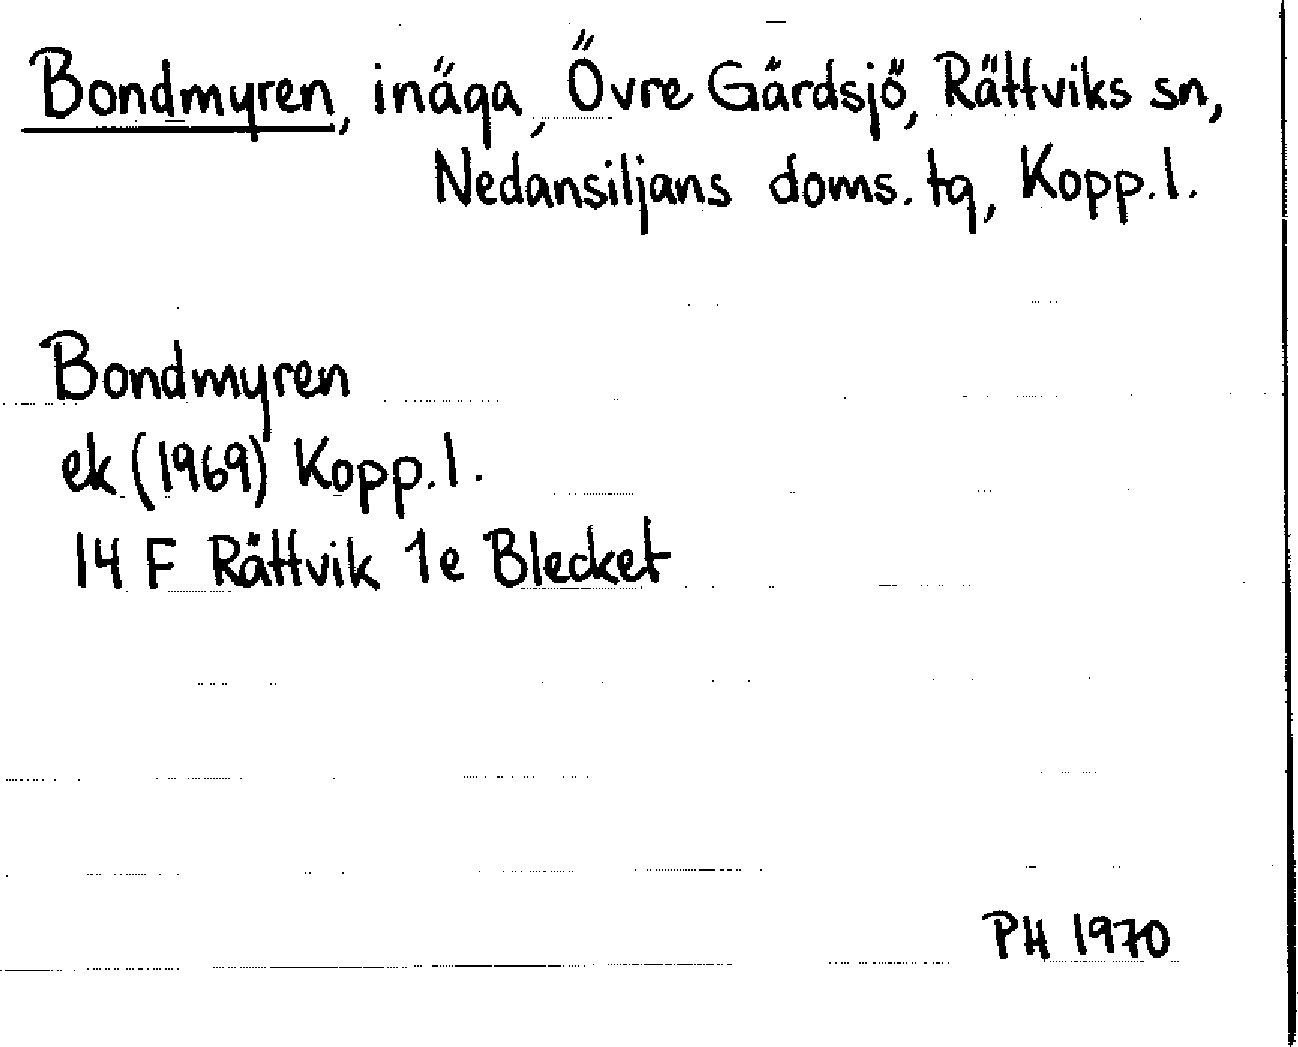 Bondmyren, inäga, Övre Gärdsjö, Rättviks sn,
Nedansiljans doms. tg, Kopp. l.
Bondmyren
ek (1969) Kopp. l.
14 F Rättvik 1e Blecket
PH 1970